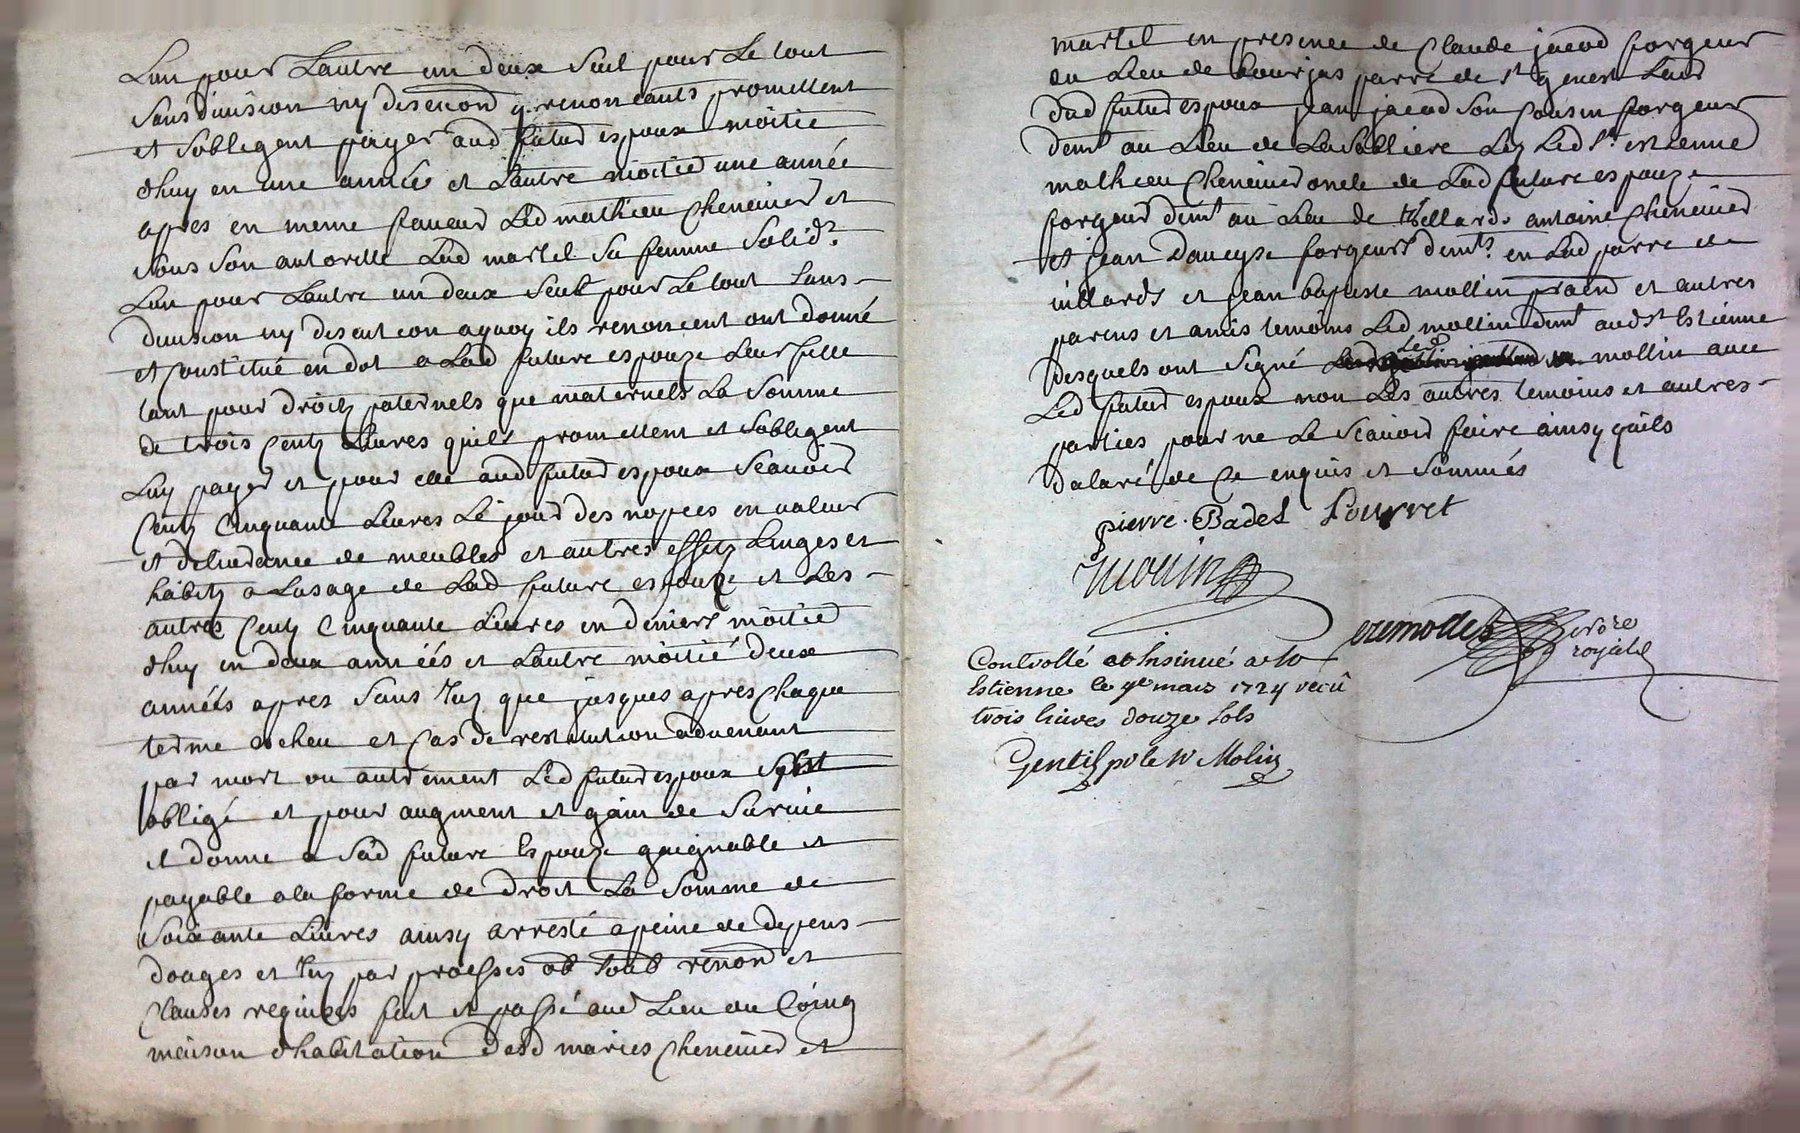 Lun pour Lautre un deux seul pour Le tout
sans diuision ny discucion y renonceants promettent
et soblegent payer aud futur espoux moitié
dhuy en une année et Lautre moitié une année
apres en meme faueur Led mathieu cheneuier et
sous son autoritté Lad martel sa femme solid.
Lun pour Lautre un deux seul pour Le tout sans
diuision ny discution aquoy ils renoncent ont donné
et constitué en dot a Lad future espouze Leur fille
tant pour droitz paternels que maternels La somme
de trois centz Liures quils promettent et soblegent
Luy payer et pour elle aud futur espoux scauoir
centz cinquante Liures Le jour des nopces en valeur
et deliurance de meubles et autres effetz Linges et
habitz a Lusage de Lad future espouze et Les
autres centz cinquante Liures en deniers moitié
dhuy en deux années et Lautre moitié deux
années apres sans que jusques apres chaque
terme escheu et cas de restitution aduenant
par mort ou autrement Led futur espoux syest
obligé et pour augment et gain de suruie
et donne a sad future Espouze gaignable et
payable a la forme de droit La somme de
soixante Liures ainsy arresté a peine de depens
doages et par procsses ob tout renon et
clauses requises fait et passé aud Lieu du Coing
maison dhabitation desd maries cheneuier et
martel en presence de Claude jacod forgeur
du Lieu de bourjas parre de st genest Lerd
dud futur espoux jean jacod son cousin forgeur
demt au Lieu de La sabliere Lez Led st estienne
mathieu cheneuier oncle de Lad future espouze
forgeur demt au Lieu de antoine cheneuier
et jean Daueyze forgeurs demts en Lad parre de
uillards et jean baptiste mollin praen et autres
parens et amis temoins Led mollin demt aud st Estienne
desquels ont signé Led mollin auec
Led futur espoux non Les autres temoins et autres
parties pour ne Le scauoir faire ainsy quils
dalaré de ce enquis et sommés
pierre Badel Pourret
Mollin
notre
royal
Controllé et Insinué a St
Estienne le 9e mars 1724 recû
trois liures douze sols
Gentil pr le Sr Molin